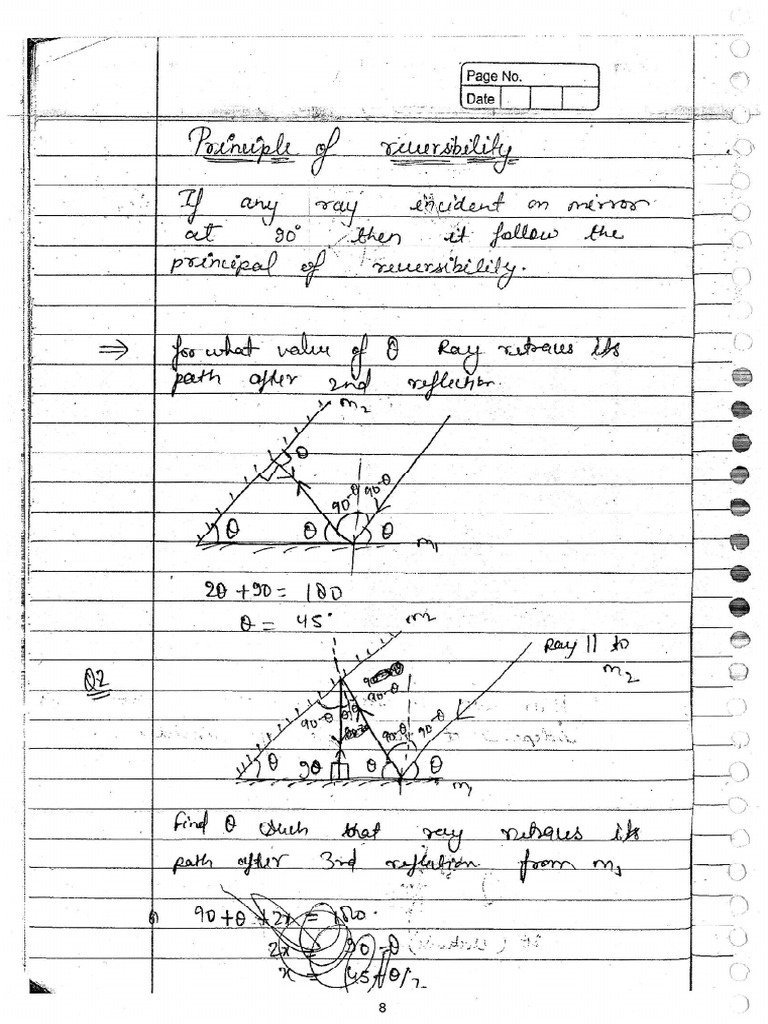 Page No.
Date
Principle of reversibility
If any ray incident on mirror
at 90° then it follow the
principal of reversibility.
⇒ for what value of θ Ray retraces its
path after 2nd reflection.
m2
θ
90-θ 90-θ
θ θ θ
m1
2θ + 90 = 180
θ = 45°
m2
Ray || to
m2
Q2
90-θ
90-θ θ θ
90-θ 90-θ
θ 90 θ θ
m1
Find θ such that ray retraces its
path after 3rd reflection from m1
90 + θ + 2x = 180.
2x = 90 - θ
x = 45 + θ/2
8